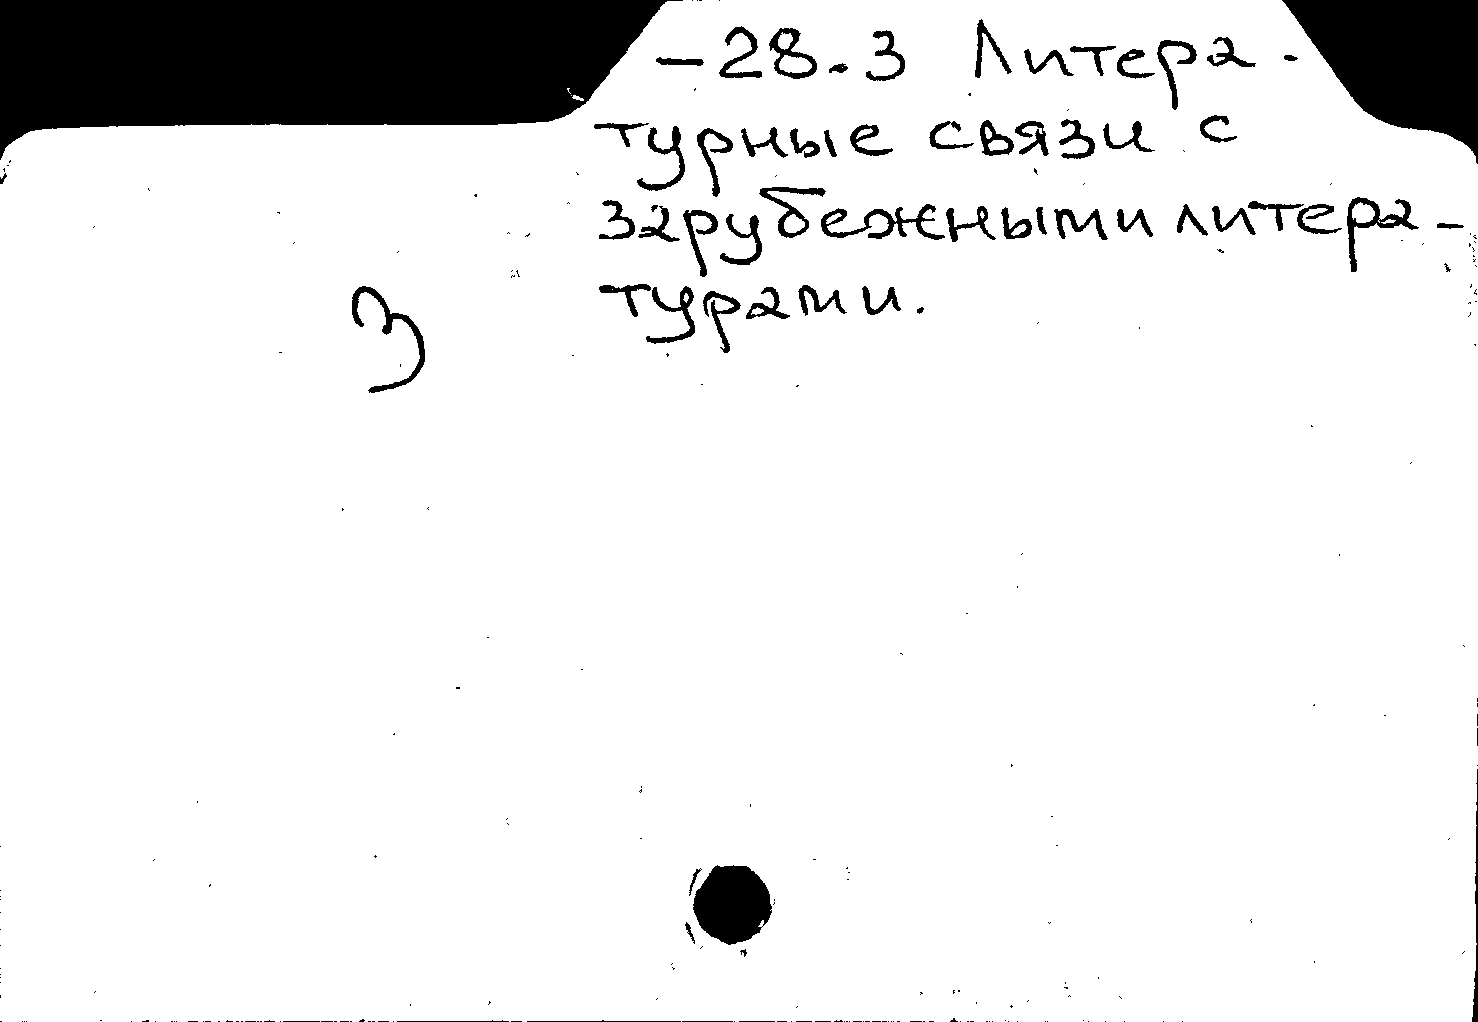 -28.3 Литера-
турные связи с
зарубежными литера-
турами.
3